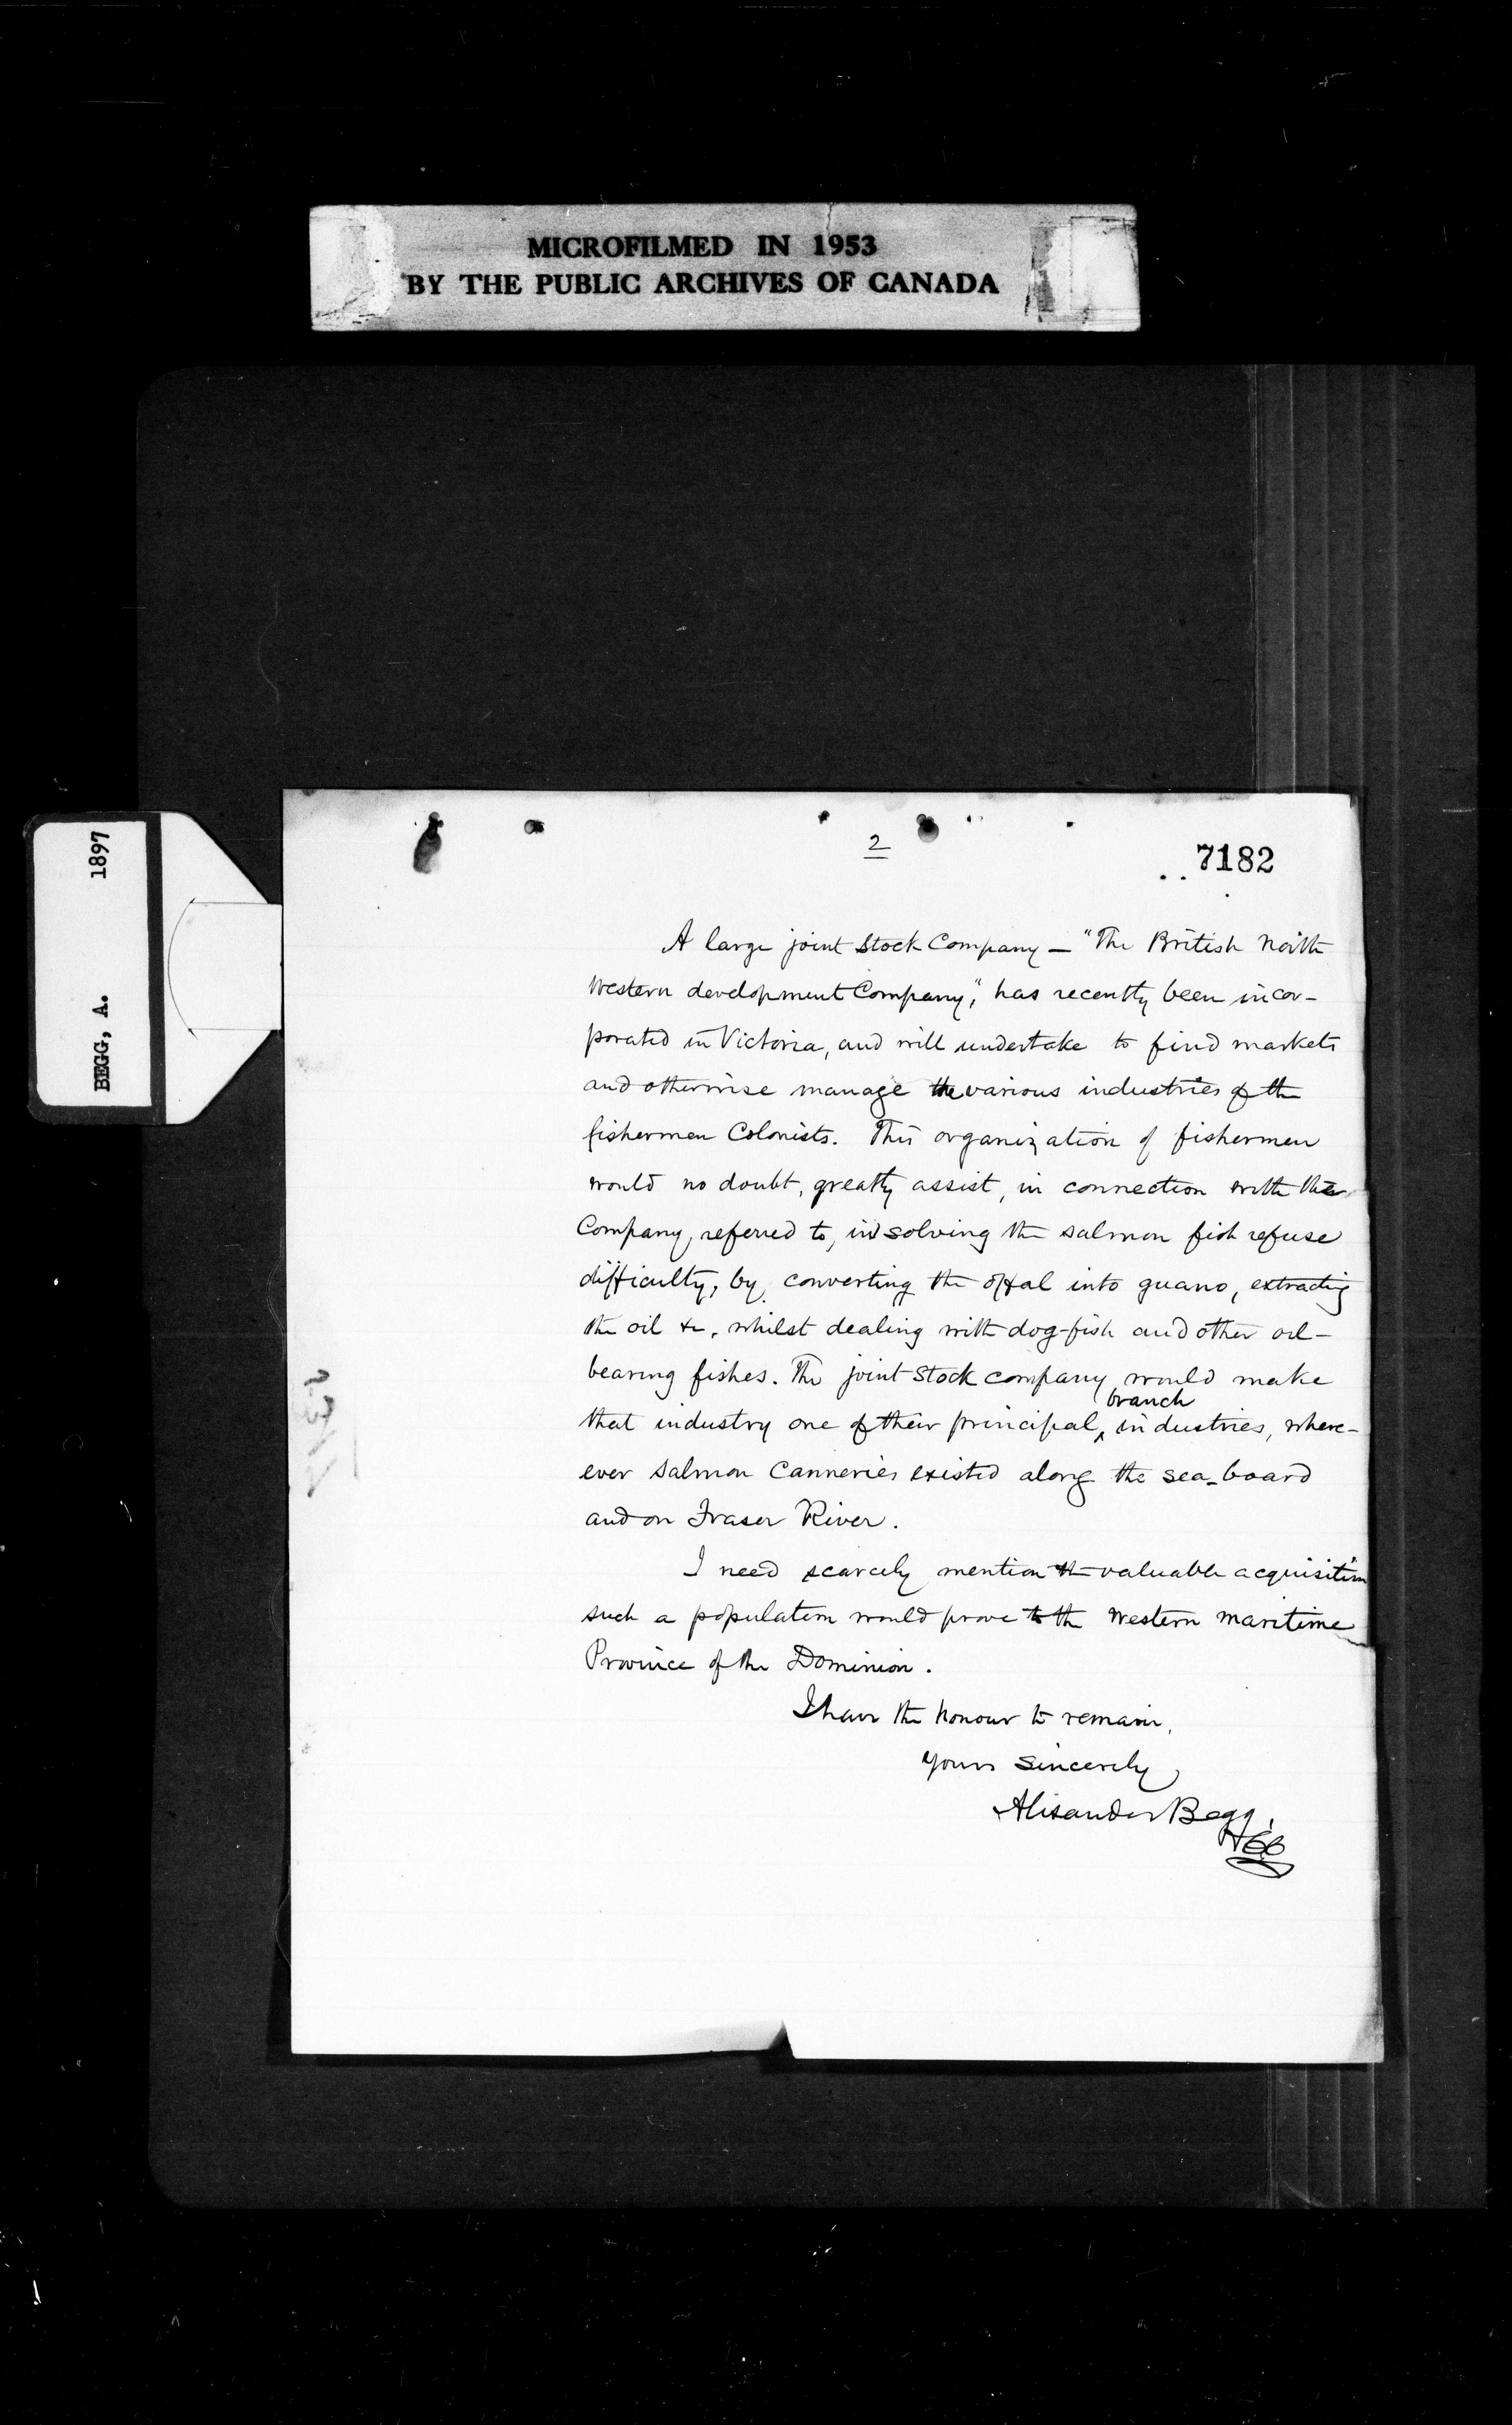 MICROFILMED IN 1953
BY THE PUBLIC ARCHIVES OF CANADA
BEGG, A. 1897
2
7182
A large joint Stock Company — "The British North
Western development Company," has recently been incor-
porated in Victoria, and will undertake to find markets
and otherwise manage the various industries of the
fishermen Colonists. This organization of fishermen
would no doubt, greatly assist, in connection with the
Company, referred to, in solving the salmon fish refuse
difficulty, by converting the offal into guano, extracting
the oil &c, whilst dealing with dog-fish and other oil-
bearing fishes. The joint Stock company would make
that industry one of their principal branch industries, where-
ever salmon Canneries existed along the sea-board
and on Fraser River.
I need scarcely mention the valuable acquisition
such a population would prove to the Western maritime
Province of the Dominion.
I have the honour to remain,
Yours Sincerely
Alexander Begg.